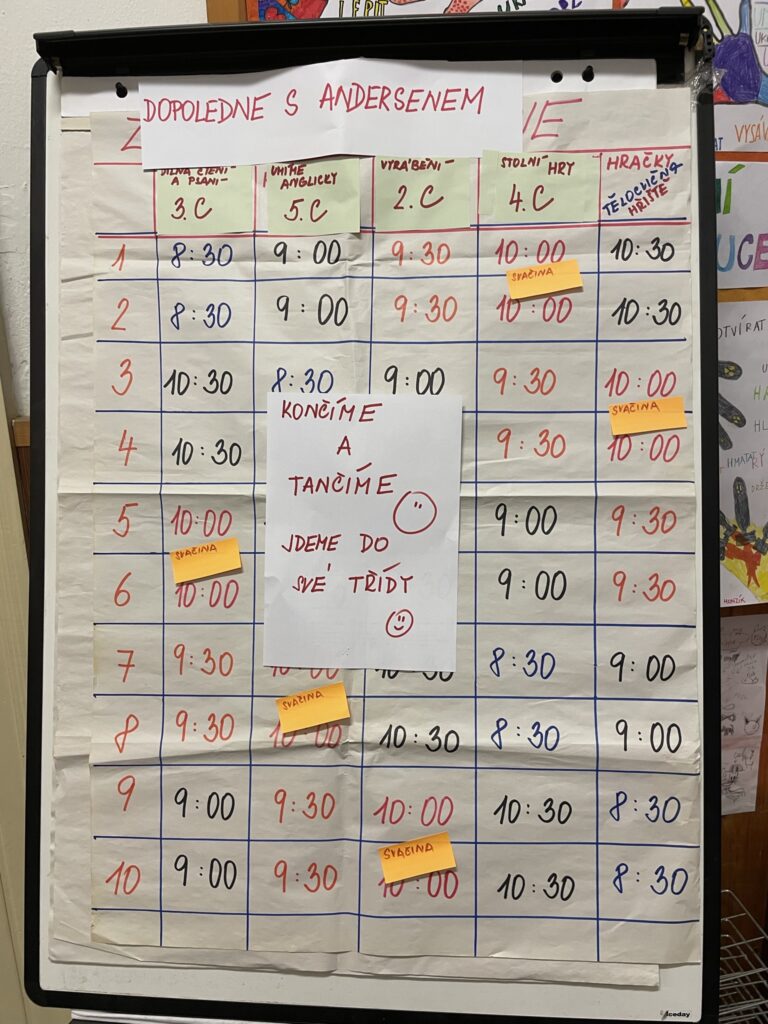 LEPIT
DOPOLEDNE S ANDERSENEM
IE
DÍLNA ČTENÍ A PSANÍ
3. C
UMÍME ANGLICKY
5. C
VYRÁBĚNÍ
2. C
STOLNÍ HRY
4. C
HRAČKY
TĚLOCVIČNA
HŘIŠTĚ
1 8:30 9:00 9:30 10:00 10:30
SVAČINA
2 8:30 9:00 9:30 10:00 10:30
3 10:30 8:30 9:00 9:30 10:00
SVAČINA
4 10:30 9:30 10:00
5 10:00 9:00 9:30
SVAČINA
6 10:00 9:00 9:30
KONČÍME
A
TANČÍME
JDEME DO
SVÉ TŘÍDY
7 9:30 10:00 10:30 8:30 9:00
SVAČINA
8 9:30 10:00 10:30 8:30 9:00
9 9:00 9:30 10:00 10:30 8:30
SVAČINA
10 9:00 9:30 10:00 10:30 8:30
VYSÁV
UCE
OTVÍRAT
HONZÍK